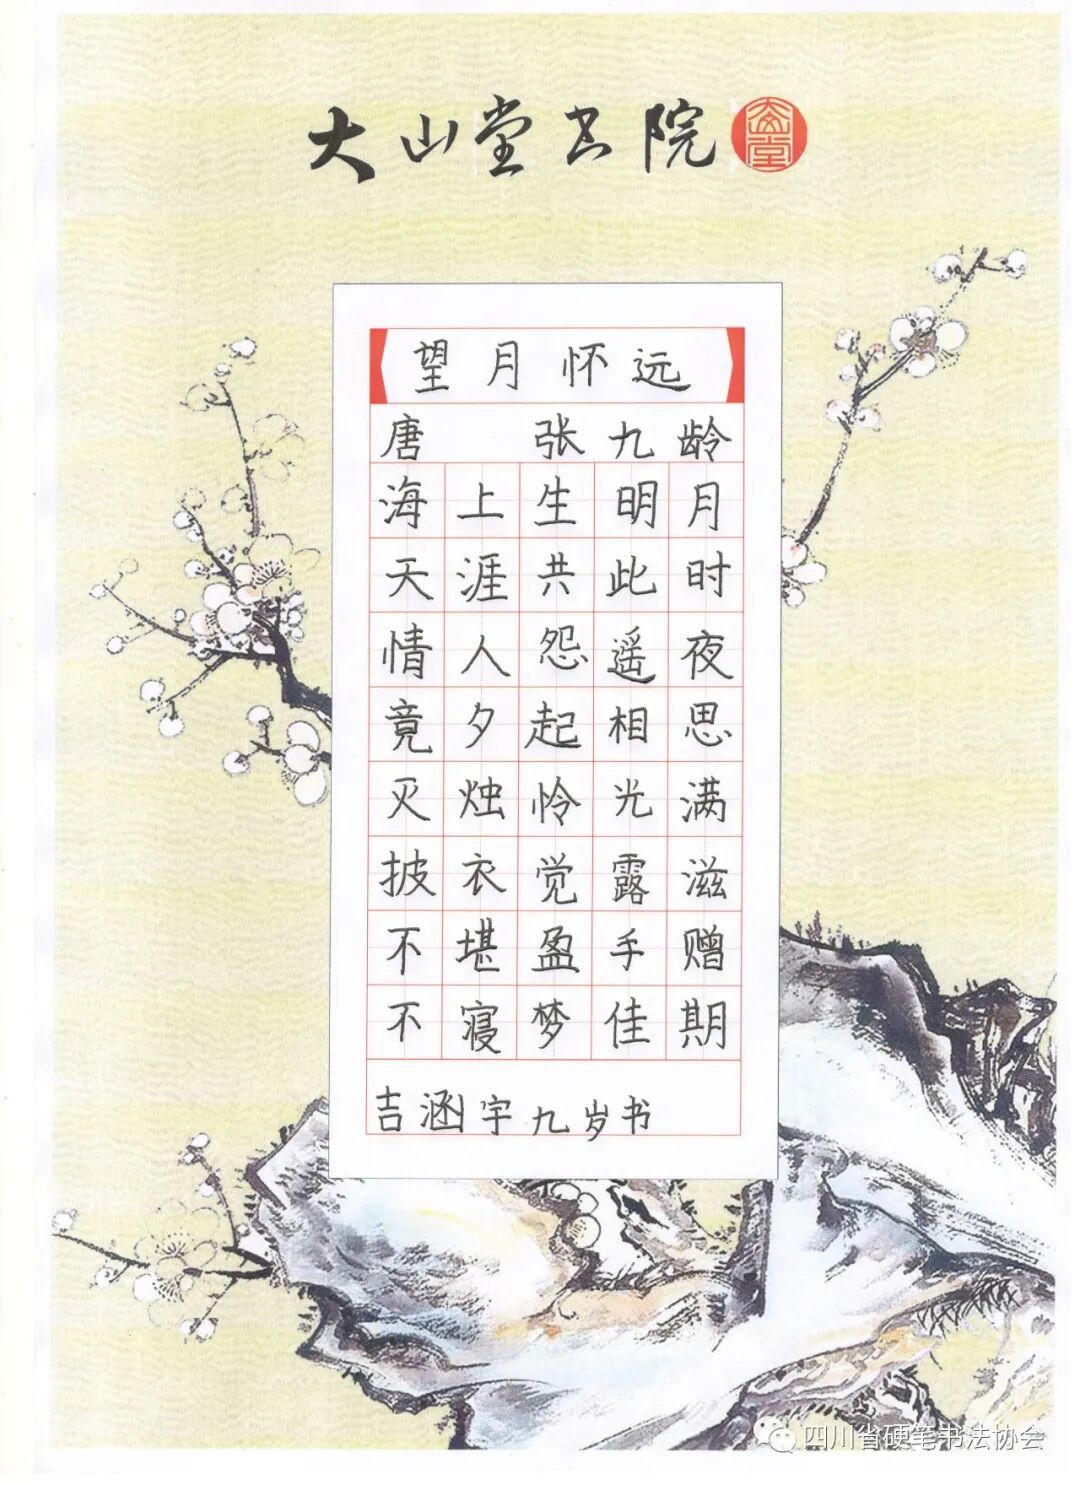 大山堂书院
望月怀远
唐 张九龄
海上生明月
天涯共此时
情人怨遥夜
竟夕起相思
灭烛怜光满
披衣觉露滋
不堪盈手赠
不寝梦佳期
吉涵宇九岁书
四川省硬笔书法协会